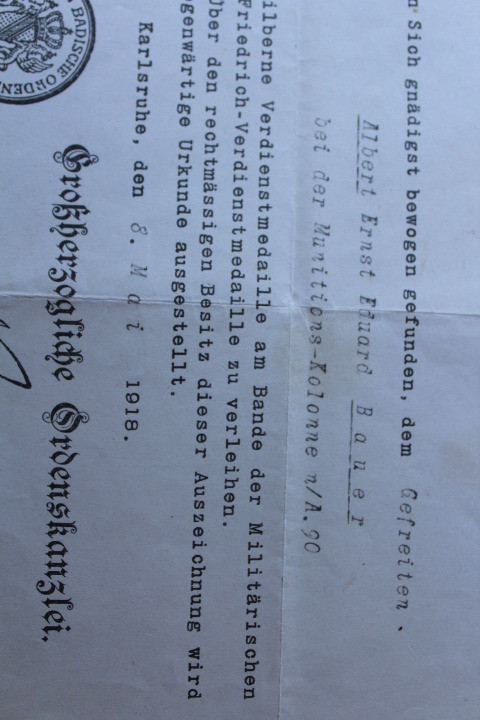 n Sich gnädigst bewogen gefunden, dem Gefreiten.
Albert Ernst Eduard Bauer
bei der Munitions-Kolonne n/A.90
ilberne Verdienstmedaille am Bande der Militärischen
Friedrich-Verdienstmedaille zu verleihen.
Über den rechtmässigen Besitz dieser Auszeichnung wird
egenwärtige Urkunde ausgestellt.
Karlsruhe, den 8. Mai 1918.
Großherzogliche Ordenskanzlei.
BADISCHE ORDENS